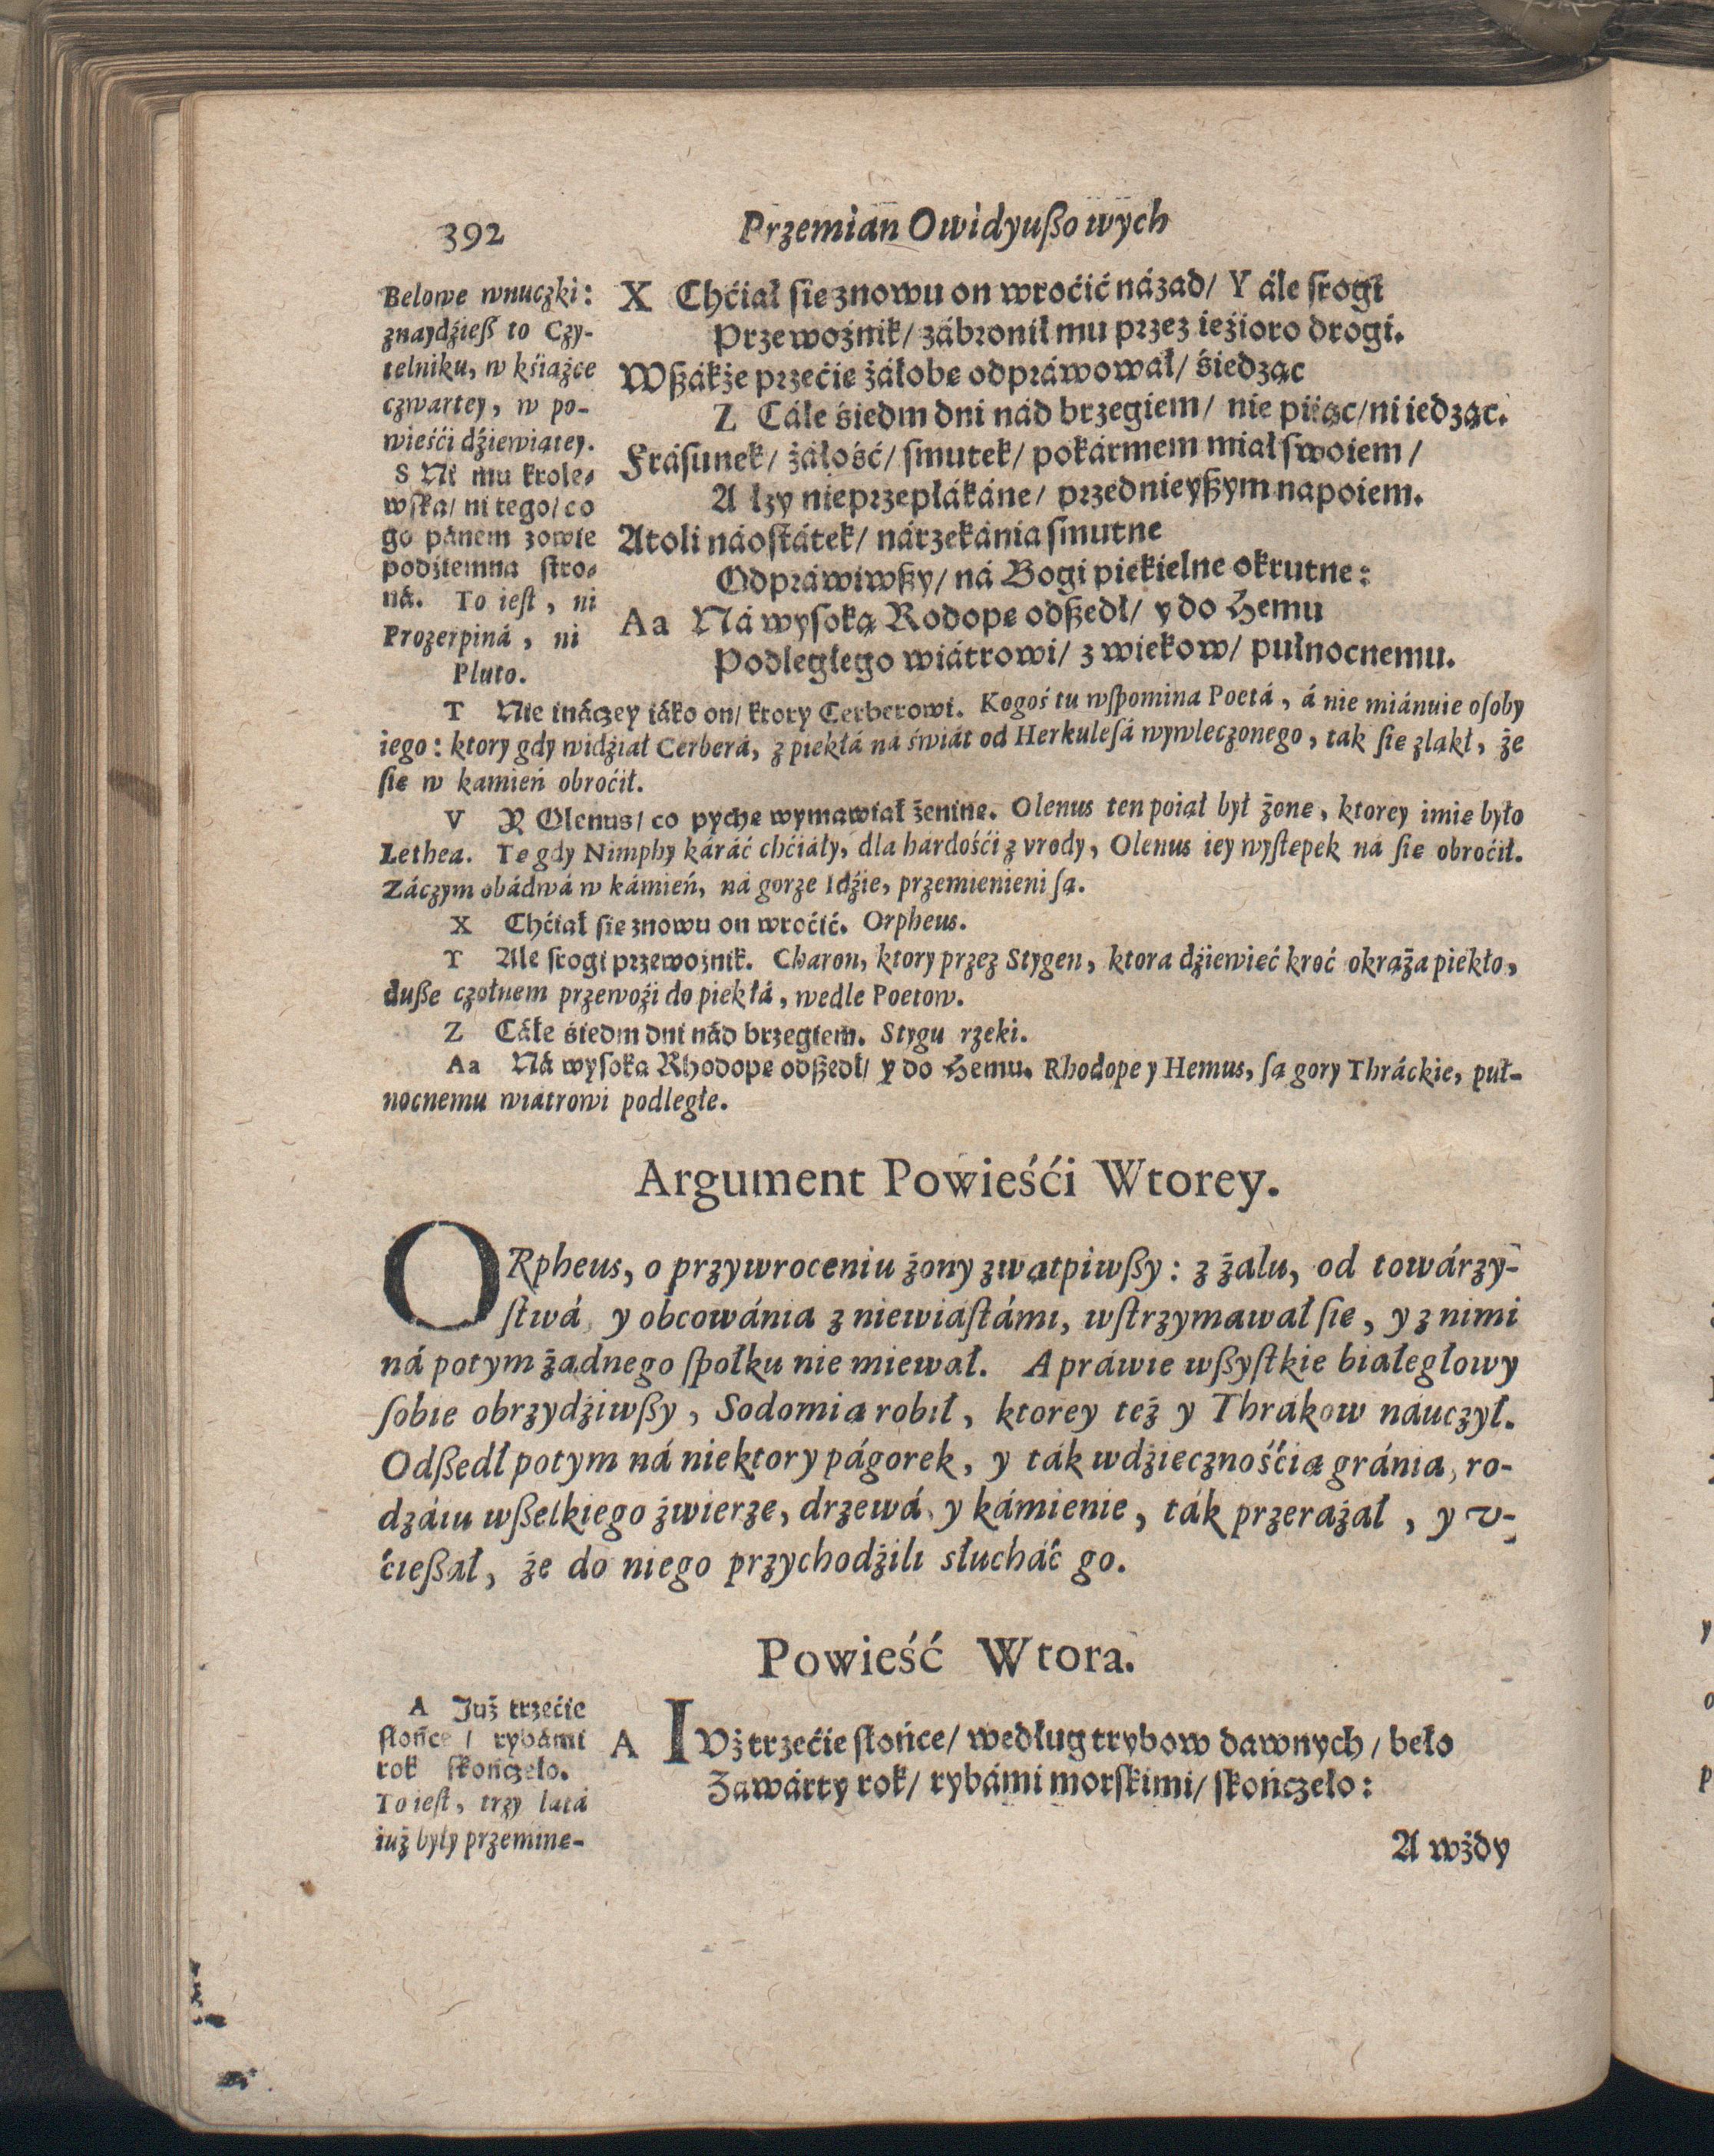 392
Przemian Owidyußowych
Belowe wnuczki:
znaydźieß to Czy-
telniku, w kśiążce
czwartey, w po-
wieśći dźiewiątey.
S Ni mu krole-
wſka/ ni tego/ co
go pánem zowie
podźiemna ſtro-
ná. To ieſt, ni
Prozerpiná, ni
Pluto.
X Chćiał ſie znowu on wroćić názad/ Y ále ſrogi
Przewoźnik/ zábronił mu przez ieźioro drogi.
Wßákże przećie żáłobe odpráwował/ śiedząc
Z Cáłe śiedm dni nád brzegiem/ nie piiąc/ ni iedząc.
Fráſunek/ żáłość/ ſmutek/ pokármem miał ſwoiem/
A łzy nieprzepłákáne/ przednieyßym napoiem.
Atoli náoſtátek/ nárzekánia ſmutne
Odpráwiwßy/ ná Bogi piekielne okrutne:
Aa Ná wyſoką Rodope odßedł/ y do Hemu
Podległego wiátrowi/ z wiekow/ pułnocnemu.
T Nie ináczey iáko on/ ktory Cerberowi. Kogoś tu wſpomina Poetá, á nie miánuie oſoby
iego: ktory gdy widźiał Cerberá, z piekłá ná świát od Herkuleſá wywleczonego, tak ſie zlakł, że
ſie w kamień obroćił.
V Y Olenus/ co pyche wymawiał żenine. Olenus ten poiął był żone, ktorey imie było
Lethea. Te gdy Nimphy káráć chćiáły, dla hardośći z vrody, Olenus iey wyſtepek ná ſie obroćił.
Záczym obádwá w kámień, ná gorze Idźie, przemienieni ſą.
X Chćiał ſie znowu on wroćić. Orpheus.
Y Ale ſrogi przewoźnik. Charon, ktory przez Stygen, ktora dźiewieć kroć okrąża piekło,
duße czołnem przewoźi do piekłá, wedle Poetow.
Z Cáłe śiedm dni nád brzegiem. Stygu rzeki.
Aa Ná wyſoką Rhodope odßedł/ y do Hemu. Rhodope y Hemus, ſą gory Thráckie, puł-
nocnemu wiatrowi podległe.
Argument Powieśći Wtorey.
ORpheus, o przywroceniu żony zwątpiwßy: z żalu, od towárzy-
ſtwá, y obcowánia z niewiaſtámi, wſtrzymawał ſie, y z nimi
ná potym żadnego ſpołku nie miewał. A práwie wßyſtkie białegłowy
ſobie obrzydźiwßy, Sodomią robił, ktorey też y Thrákow náuczył.
Odßedł potym ná niektory págorek, y ták wdźiecznośćią gránia, ro-
dzáiu wßelkiego źwierze, drzewá, y kámienie, ták przerażał, y v-
ćießał, że do niego przychodźili słucháć go.
Powieść Wtora.
A Już trzećie
słońce / rybámi
rok skończeło.
To ieſt, trzy latá
iuż były przemine-
A IVż trzećie słońce/ według trybow dawnych/ beło
Záwárty rok/ rybámi morſkimi/ ſkończeło:
A wżdy